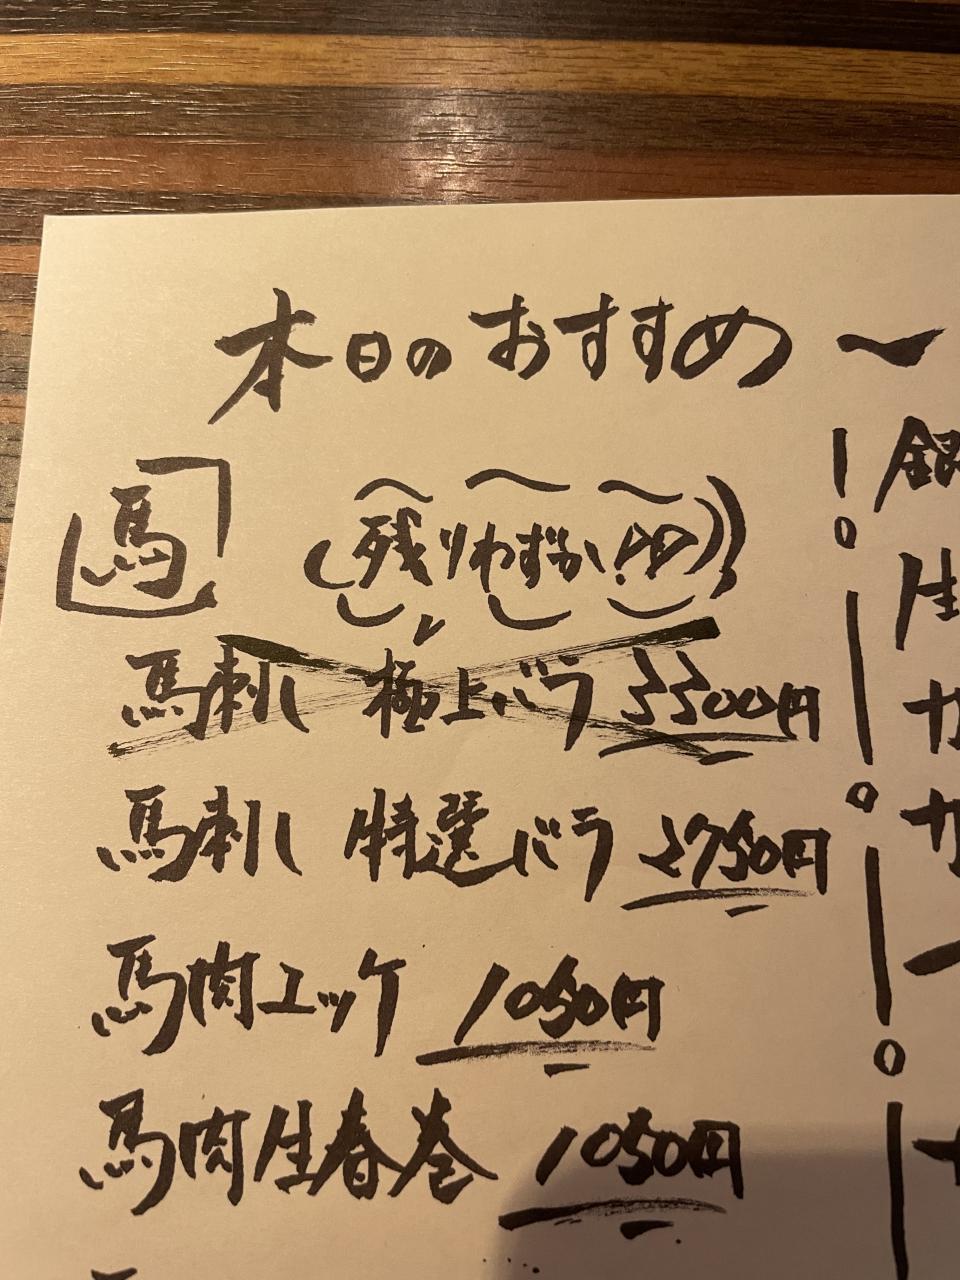 本日のおすすめ
馬
(残りわずか!!)
馬刺し 極上バラ 3300円
馬刺し 特選バラ 2750円
馬肉ユッケ 1050円
馬肉生春巻 1050円
生